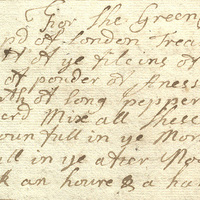 For the Green
pd of London Trea
tt of ye fileins of
of pouder of stness
oth of long pepper
erd Mix all these
ounfull in ye Mor
ull in ye after Noo
k an houre & a ha